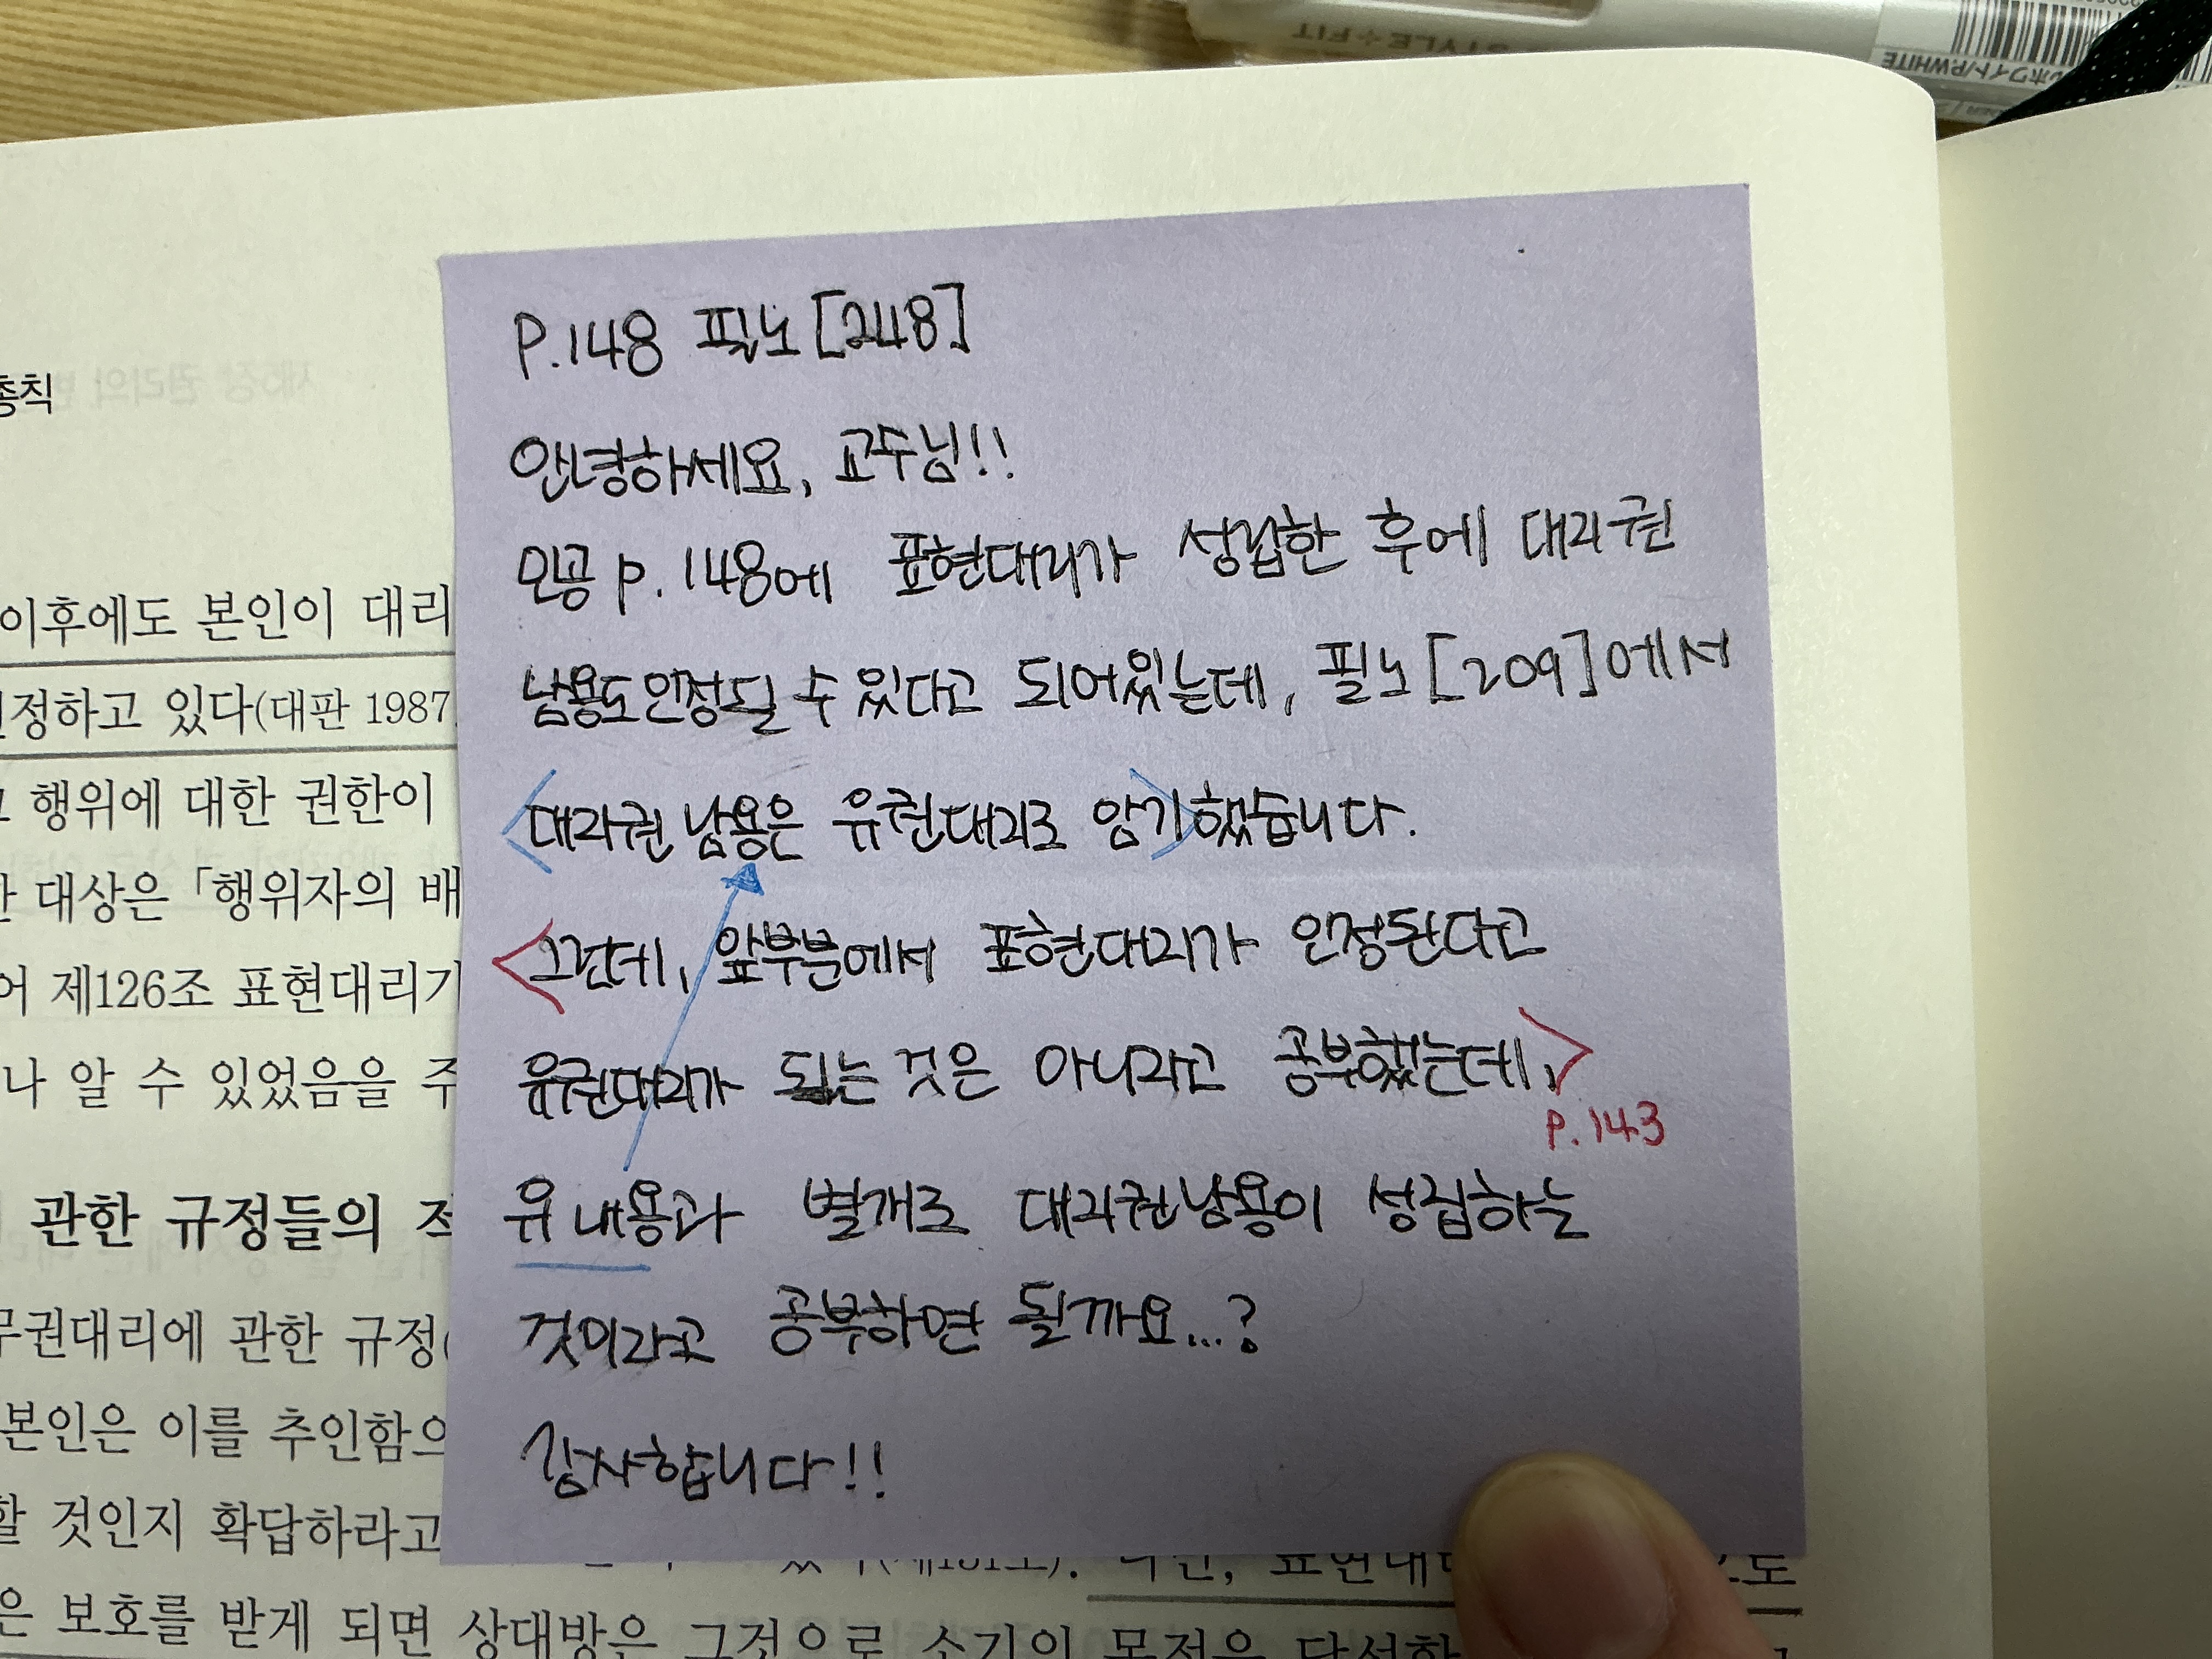 STYLE+FIT
ホワイト/P.WHITE
총칙
P.148 필노 [248]
안녕하세요, 교수님!!
민공 p.148에 표현대리가 성립한 후에 대리권
남용도 인정될 수 있다고 되어있는데, 필노 [209]에서
<대리권 남용은 유권대리로 암기>했습니다.
<그런데, 앞부분에서 표현대리가 인정된다고
유권대리가 되는 것은 아니라고 공부했는데,>
P.143
유 내용과 별개로 대리권남용이 성립하는
것이라고 공부하면 될까요...?
감사합니다!!
이후에도 본인이 대리
정하고 있다(대판 1987.
행위에 대한 권한이
대상은 「행위자의 배
어 제126조 표현대리가
나 알 수 있었음을 주
관한 규정들의 적
무권대리에 관한 규정(
본인은 이를 추인함으
할 것인지 확답하라고
은 보호를 받게 되면 상대방은 그것으로 소기의 목적을 달성하